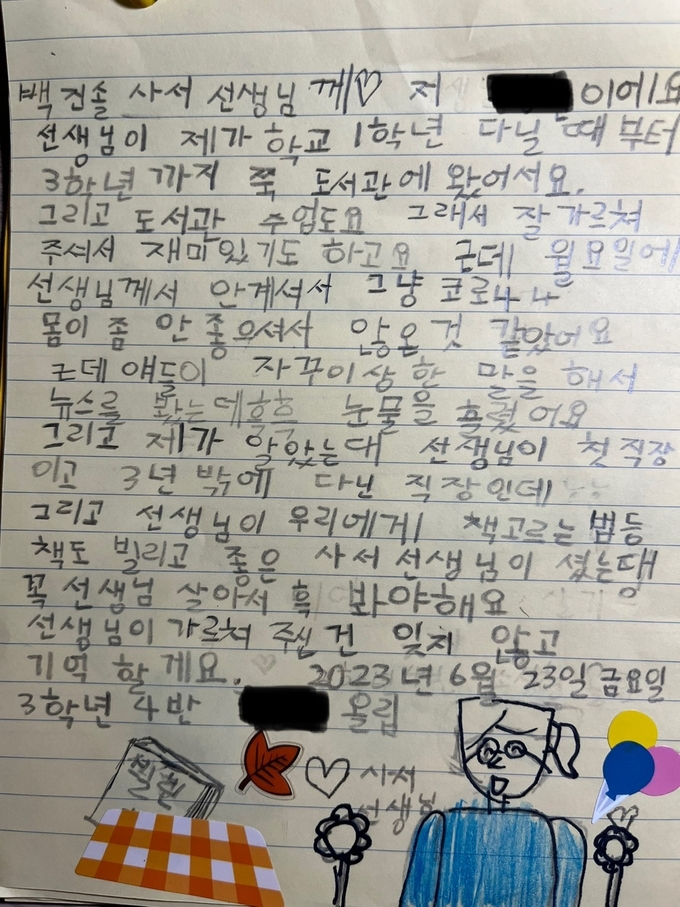 백진솔 사서 선생님께♡ 저 이에요
선생님이 제가 학교 1학년 다닐 때부터
3학년 까지 쭉 도서관에 왔어서요.
그리고 도서관 수업도요 그래서 잘 가르쳐
주셔서 재미있기도 하고요 근데 월요일에
선생님께서 안계셔서 그냥 코로나나
몸이 좀 안 좋으셔서 않온것 같았어요
근데 얘들이 자꾸이상한 말을 해서
뉴스를 봤는데흑흑 눈물을 흘렸어요
그리고 제가 알았는대 선생님이 첫직장
이고 3년 밖에 다닌 직장인데
그리고 선생님이 우리에게 책고르는법등
책도 빌리고 좋은 사서선생님이 셨는댕
꼭 선생님 살아서 흑 봐야해요
선생님이 가르쳐 주신건 잊지 않고
기억 할게요. 2023년 6월 23일 금요일
3학년 4반 올림
사서
선생님